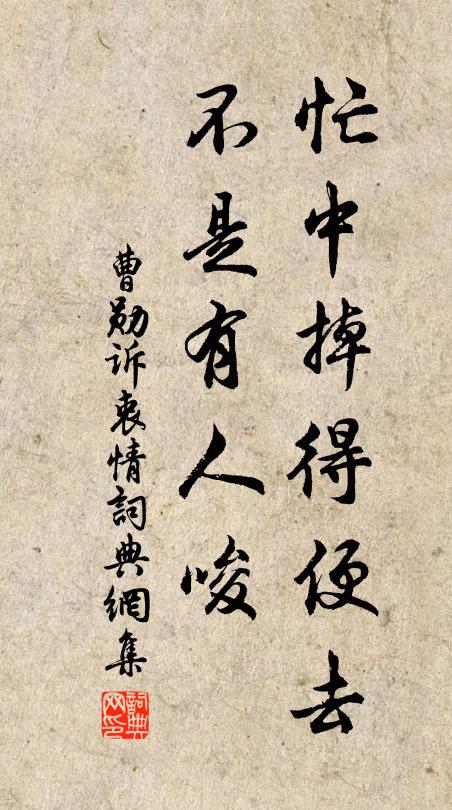 忙中掉得便去
不是有人唆
曹勛訴衷情詞典網集
詞典
网印